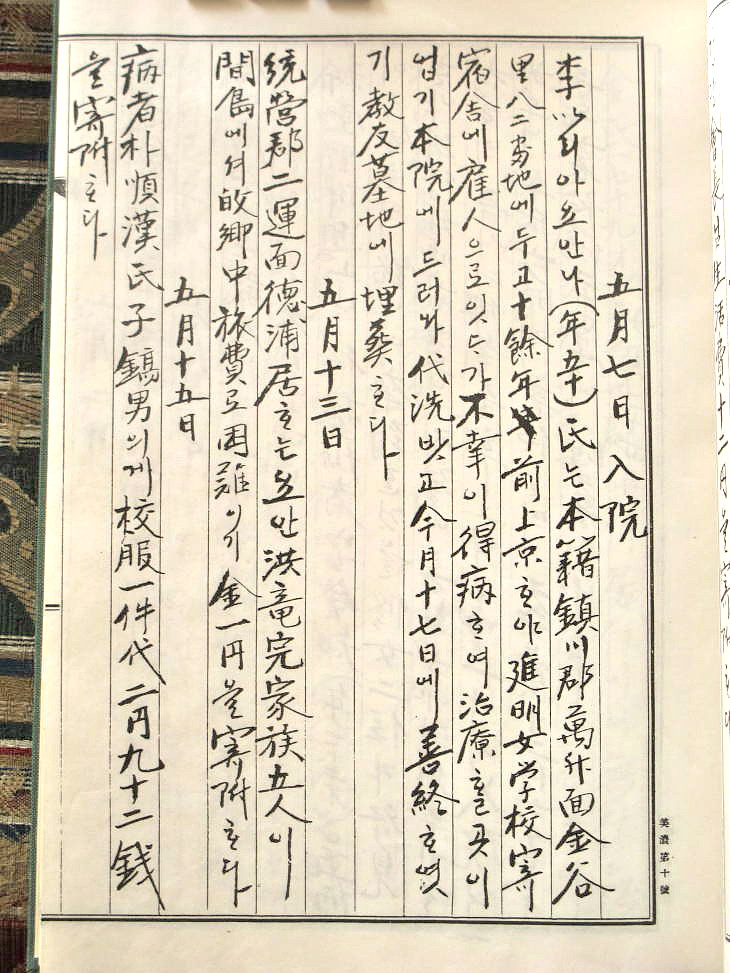 五月七日 入院
李마리아요안나(年五十)氏는本籍鎮川郡萬升面金谷
里八二番地에두고十餘年前上京ᄒᆞ야進明女学校寄
宿舍에雇人으로잇드가不幸이得病ᄒᆞ여治療ᄒᆞᆯ곳이
업기本院에드러와代洗밧고今月十七日에善終ᄒᆞ엿
기敎友墓地에埋葬ᄒᆞ다
五月十三日
統營郡二運面德浦居ᄒᆞ는요안洪竜完家族五人이
間島에셔故鄕中旅費로困難이기金一円을寄附ᄒᆞ다
五月十五日
病者朴順漢氏子鎬男의게校服一件代二円九十二錢
을寄附ᄒᆞ다
美濃第十號